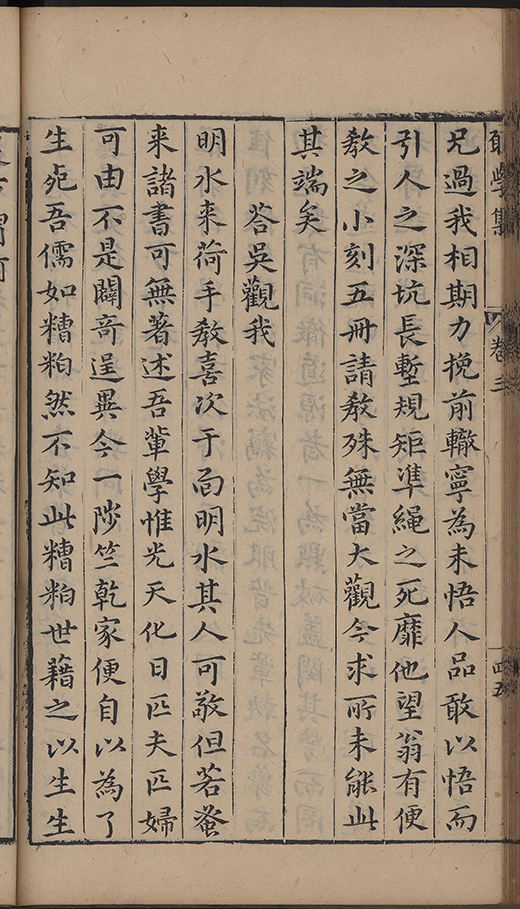 學集
卷三
兄過我相期力挽前轍寧為未悟人品敢以悟而
引人之深坑長塹規矩凖繩之死靡他望翁有便
敎之小刻五冊請敎殊無當大觀今求所未能此
其端矣
答吳觀我
明水来荷手敎喜次于面明水其人可敬但若蚤
来諸書可無著述吾輩學惟光天化日匹夫匹婦
可由不是闢竒逞異今一陟竺乾家便自以為了
生死吾儒如糟粕然不知此糟粕世藉之以生生